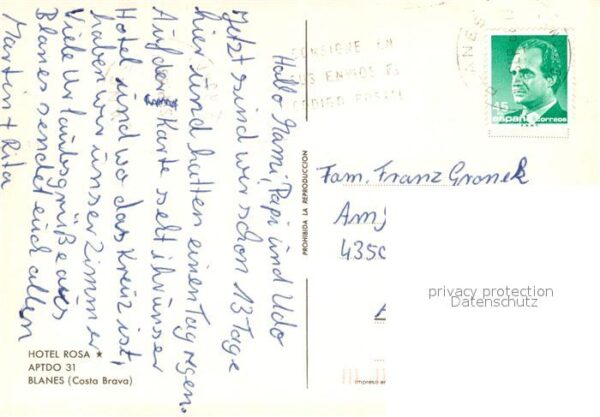 Hallo Mami, Papi und Udo
Jetzt sind wir schon 13 Tage
hier und hatten einen Tag regen.
Auf der Karte seht ihr unser
Hotel und wo das Kreuz ist,
haben wir unser Zimmer
Viele Urlaubsgrüße aus
Blanes sendet euch allen
Martin + Rita
HOTEL ROSA ★
APTDO 31
BLANES (Costa Brava)
PROHIBIDA LA REPRODUCCION
CONSIGNE EN
SUS ENVIOS EL
CODIGO POSTAL
BLANES
45
españa correos
Fam. Franz Gronek
Am
435
privacy protection
Datenschutz
Impreso en